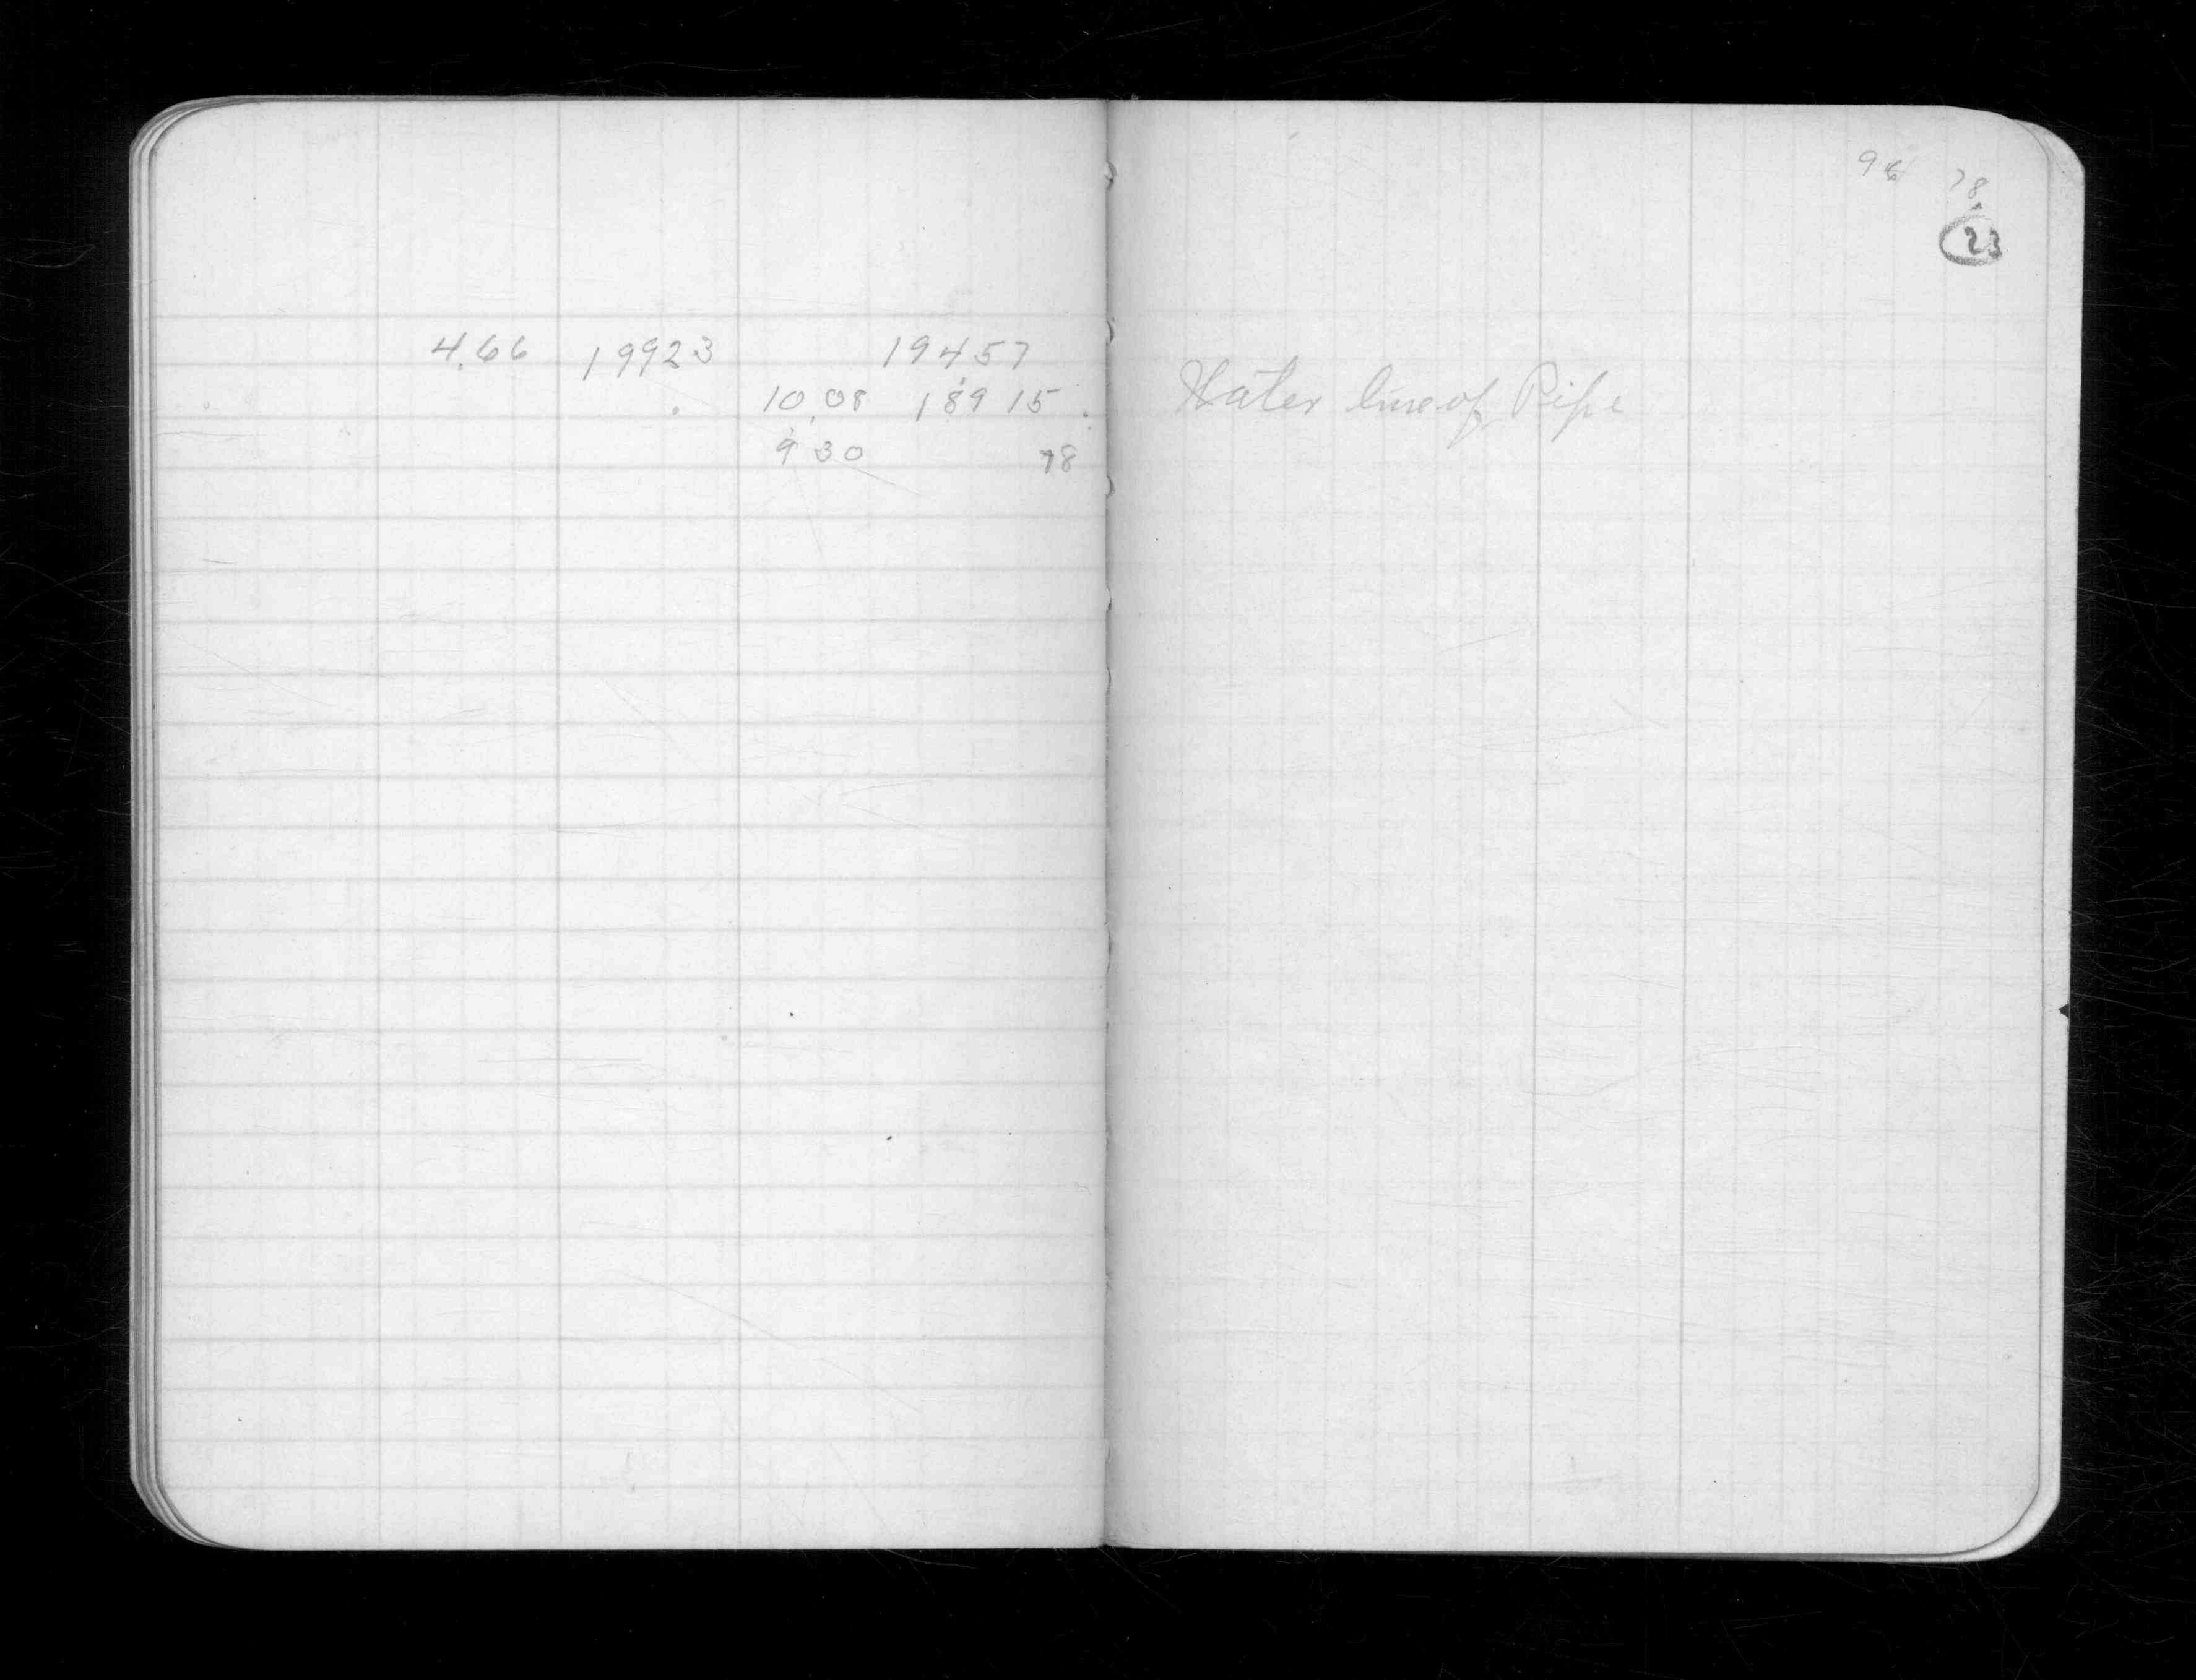 4.66 19923 19457
10.08 189 15
9 30 78
96 78
23
Water line of Pipe